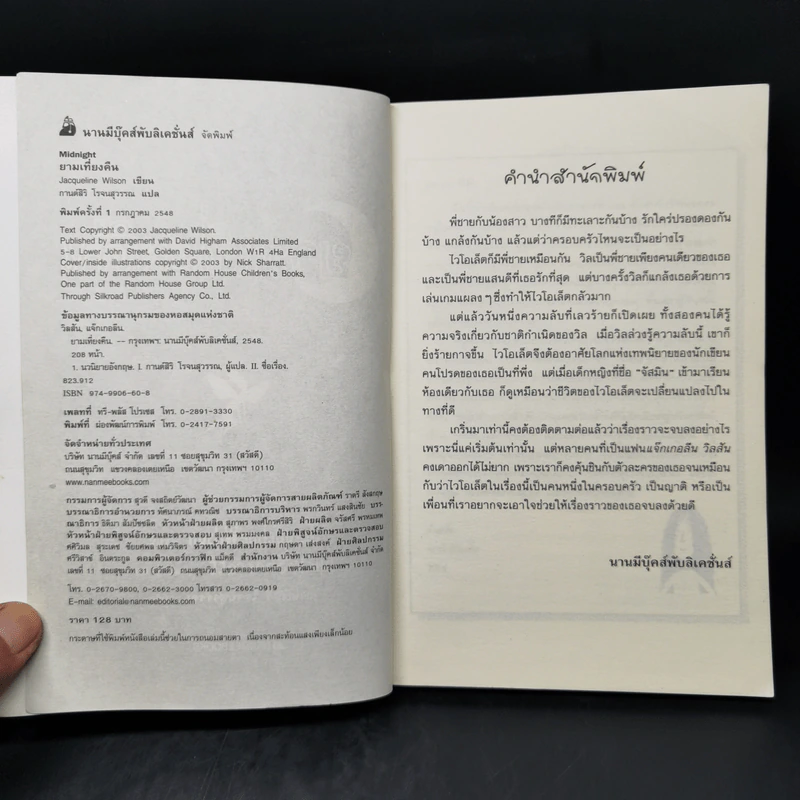 นานมีบุ๊คส์พับลิเคชั่นส์ จัดพิมพ์
Midnight
ยามเที่ยงคืน
Jacqueline Wilson เขียน
กานต์สิริ โรจนสุวรรณ แปล
พิมพ์ครั้งที่ 1 กรกฎาคม 2548
Text Copyright © 2003 Jacqueline Wilson.
Published by arrangement with David Higham Associates Limited
5-8 Lower John Street, Golden Square, London W1R 4Ha England
Cover/inside illustrations copyright © 2003 by Nick Sharratt.
Published by arrangement with Random House Children's Books,
One part of the Random House Group Ltd.
Through Silkroad Publishers Agency Co., Ltd.
ข้อมูลทางบรรณานุกรมของหอสมุดแห่งชาติ
วิลสัน, แจ๊กเกอลีน.
ยามเที่ยงคืน. -- กรุงเทพฯ: นานมีบุ๊คส์พับลิเคชั่นส์, 2548.
208 หน้า.
1. นวนิยายอังกฤษ. I. กานต์สิริ โรจนสุวรรณ, ผู้แปล. II. ชื่อเรื่อง.
823.912
ISBN 974-9906-60-8
เพลทที่ ทรี-พลัส โปรเซส โทร. 0-2891-3330
พิมพ์ที่ ผ่องพัฒน์การพิมพ์ โทร. 0-2417-7591
จัดจำหน่ายทั่วประเทศ
บริษัท นานมีบุ๊คส์ จำกัด เลขที่ 11 ซอยสุขุมวิท 31 (สวัสดี)
ถนนสุขุมวิท แขวงคลองเตยเหนือ เขตวัฒนา กรุงเทพฯ 10110
www.nanmeebooks.com
กรรมการผู้จัดการ สุวดี จงสถิตย์วัฒนา ผู้ช่วยกรรมการผู้จัดการสายผลิตภัณฑ์ ราตรี
บรรณาธิการอำนวยการ ทัศนาภรณ์ คทวณิช บรรณาธิการบริหาร พรกวินทร์ แสงสินชัย บรร-
ณาธิการ หัวหน้าฝ่ายผลิต สุภาพร พงศ์ไกรศรีสิริ ฝ่ายผลิต จรัสศรี พรหมเทพ
หัวหน้าฝ่ายพิสูจน์อักษรและตรวจสอบ สุเทพ พรมมงคล ฝ่ายพิสูจน์อักษรและตรวจสอบ
ศศิวิมล สุระเดช ชัยยศพล เทมวิจิตร หัวหน้าฝ่ายศิลปกรรม กฤษดา เส่งสงค์ ฝ่ายศิลปกรรม
ศรีวิสาข์ อินตระกูล คอมพิวเตอร์กราฟิก แม็คดี สำนักงาน บริษัท นานมีบุ๊คส์พับลิเคชั่นส์ จำกัด
เลขที่ 11 ซอยสุขุมวิท 31 (สวัสดี) ถนนสุขุมวิท แขวงคลองเตยเหนือ เขตวัฒนา กรุงเทพฯ 10110
โทร. 0-2670-9800, 0-2662-3000 โทรสาร 0-2662-0919
E-mail: editorial@nanmeebooks.com
ราคา 128 บาท
กระดาษที่ใช้พิมพ์หนังสือเล่มนี้ช่วยในการถนอมสายตา เนื่องจากสะท้อนแสงเพียงเล็กน้อย
คำนำสำนักพิมพ์
พี่ชายกับน้องสาว บางทีก็มีทะเลาะกันบ้าง รักใคร่ปรองดองกัน
บ้าง แกล้งกันบ้าง แล้วแต่ว่าครอบครัวไหนจะเป็นอย่างไร
ไวโอเล็ตก็มีพี่ชายเหมือนกัน วิลเป็นพี่ชายเพียงคนเดียวของเธอ
และเป็นพี่ชายแสนดีที่เธอรักที่สุด แต่บางครั้งวิลก็แกล้งเธอด้วยการ
เล่นเกมแผลงๆ ซึ่งทำให้ไวโอเล็ตกลัวมาก
แต่แล้ววันหนึ่งความลับที่เลวร้ายก็เปิดเผย ทั้งสองคนได้รู้
ความจริงเกี่ยวกับชาติกำเนิดของวิล เมื่อวิลล่วงรู้ความลับนี้ เขาก็
ยิ่งร้ายกาจขึ้น ไวโอเล็ตจึงต้องอาศัยโลกแห่งเทพนิยายของนักเขียน
คนโปรดของเธอเป็นที่พึ่ง แต่เมื่อเด็กหญิงที่ชื่อ “จัสมิน” เข้ามาเรียน
ห้องเดียวกับเธอ ก็ดูเหมือนว่าชีวิตของไวโอเล็ตจะเปลี่ยนแปลงไปใน
ทางที่ดี
เกริ่นมาเท่านี้คงต้องติดตามต่อแล้วว่าเรื่องราวจะจบลงอย่างไร
เพราะนี่แค่เริ่มต้นเท่านั้น แต่หลายคนที่เป็นแฟนแจ๊กเกอลีน วิลสัน
คงเดาออกได้ไม่ยาก เพราะเราก็คงคุ้นชินกับตัวละครของเธอจนเหมือน
กับว่าไวโอเล็ตในเรื่องนี้เป็นคนหนึ่งในครอบครัว เป็นญาติ หรือเป็น
เพื่อนที่เราอยากจะเอาใจช่วยให้เรื่องราวของเธอจบลงด้วยดี
นานมีบุ๊คส์พับลิเคชั่นส์